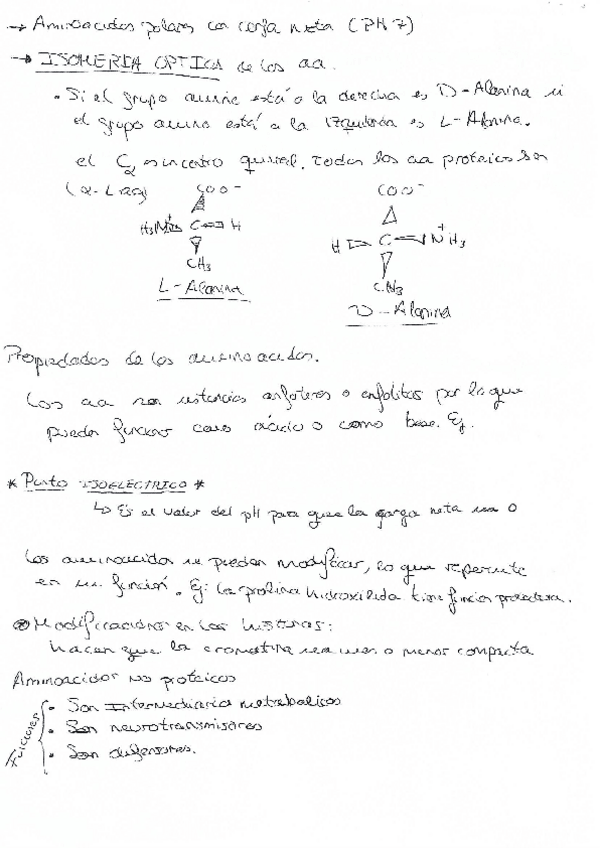 → Aminoacidos polares con carga neta (PH 7)
→ ISOMERIA OPTICA de los aa.
• Si el grupo amino está a la derecha es D-Alanina si
el grupo amino está a la Izquierda es L-Alanina.
el Cα es un centro quiral. Todos los aa proteicos son
(α-L aa)
COO⁻ COO⁻
H₃N⁺ C H H C N⁺H₃
CH₃ CH₃
L-Alanina D-Alanina
Propiedades de los aminoacidos.
Los aa son sustancias anfoteras o anfolitos por lo que
pueden funcionar como ácido o como base. Ej.
* Punto ISOELECTRICO *
↳ Es el valor del pH para que la carga neta sea 0
Los aminoacidos se pueden modificar, lo que repercute
en su función. Ej: la prolina hidroxilada tiene función protectora.
Modificaciones en las histonas:
hacen que la cromatina sea mas o menor compacta
Aminoacidos no proteicos
Funciones
• Son Intermediarios metabolicos
• Son neurotransmisores
• Son defensores.